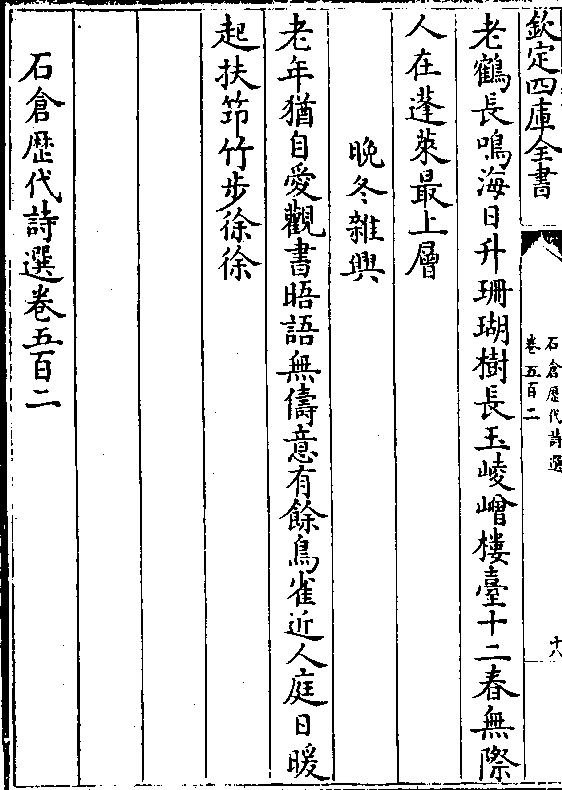 欽定四庫全書
石倉歷代詩選
卷五百二
十八
老鶴長鳴海日升珊瑚樹長玉崚嶒樓臺十二春無際
人在蓬萊最上層
晚冬雜興
老年猶自愛觀書晤語無儔意有餘鳥雀近人庭日暖
起扶笻竹步徐徐
石倉歷代詩選卷五百二